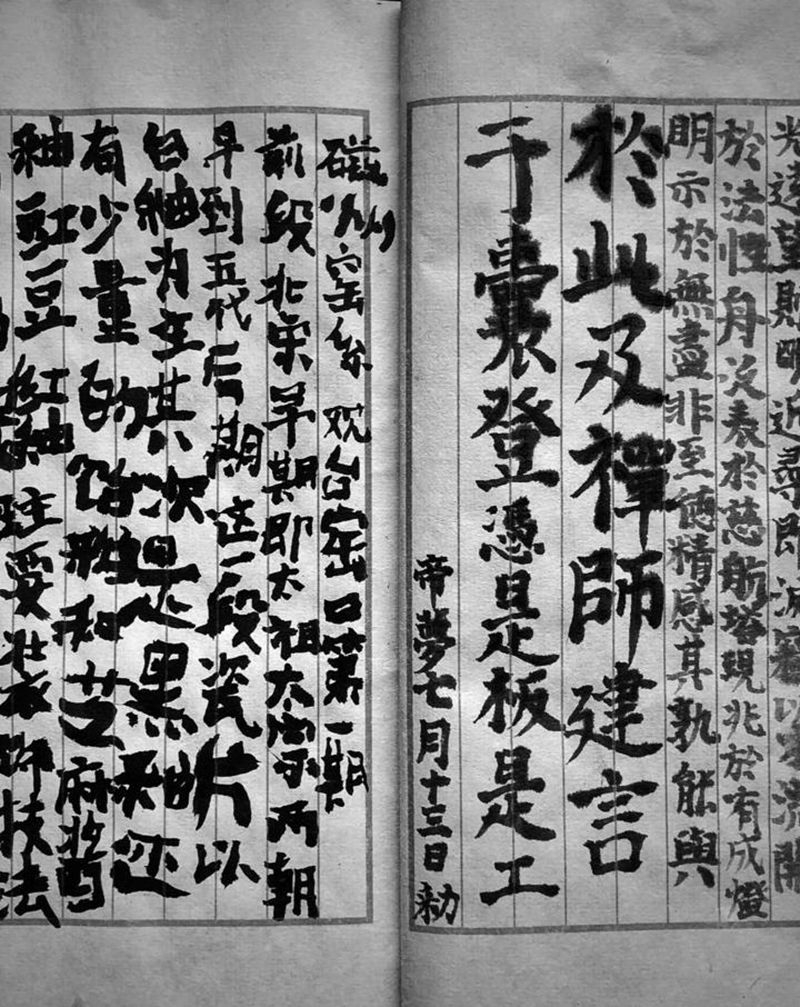 光遠望則明近尋即滅竊以水流開
於法性舟表於慈航塔現兆於有成燈
明示於無盡非至德精感其孰能與
於此及禪師建言
于囊登憑是板是工
帝夢七月十三日勑
磁州窑系观台窑口第一期
前段北宋早期即太祖太宗两朝
早到五代后期这一段瓷片以
白釉为主其次是黑釉还
有少量的饴釉和芝麻酱
釉豇豆红釉主要装饰技法